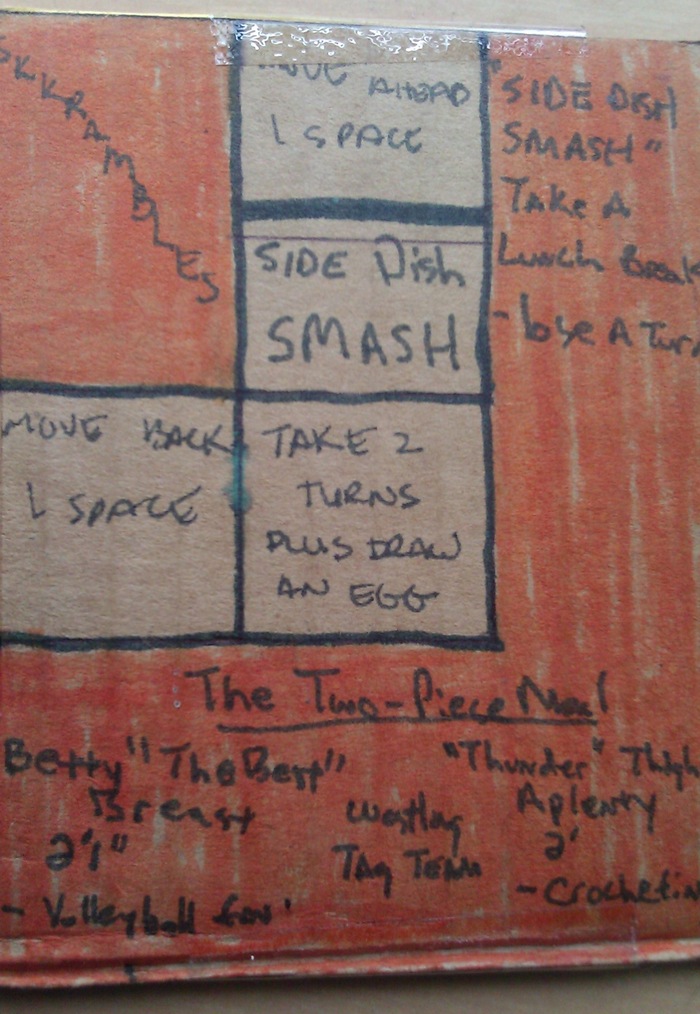 SKKRAMBLES
MOVE AHEAD
1 SPACE
"SIDE DISH
SMASH"
Take A
Lunch Break
- lose A Turn
SIDE Dish
SMASH
MOVE BACK
1 SPACE
TAKE 2
TURNS
PLUS DRAW
AN EGG
The Two-Piece Meal
Betty "The Best"
Breast
2'1"
- Volleyball fan
Westling
TAg TEAM
"Thunder" Thigh
Aplenty
2'
- Crochetin